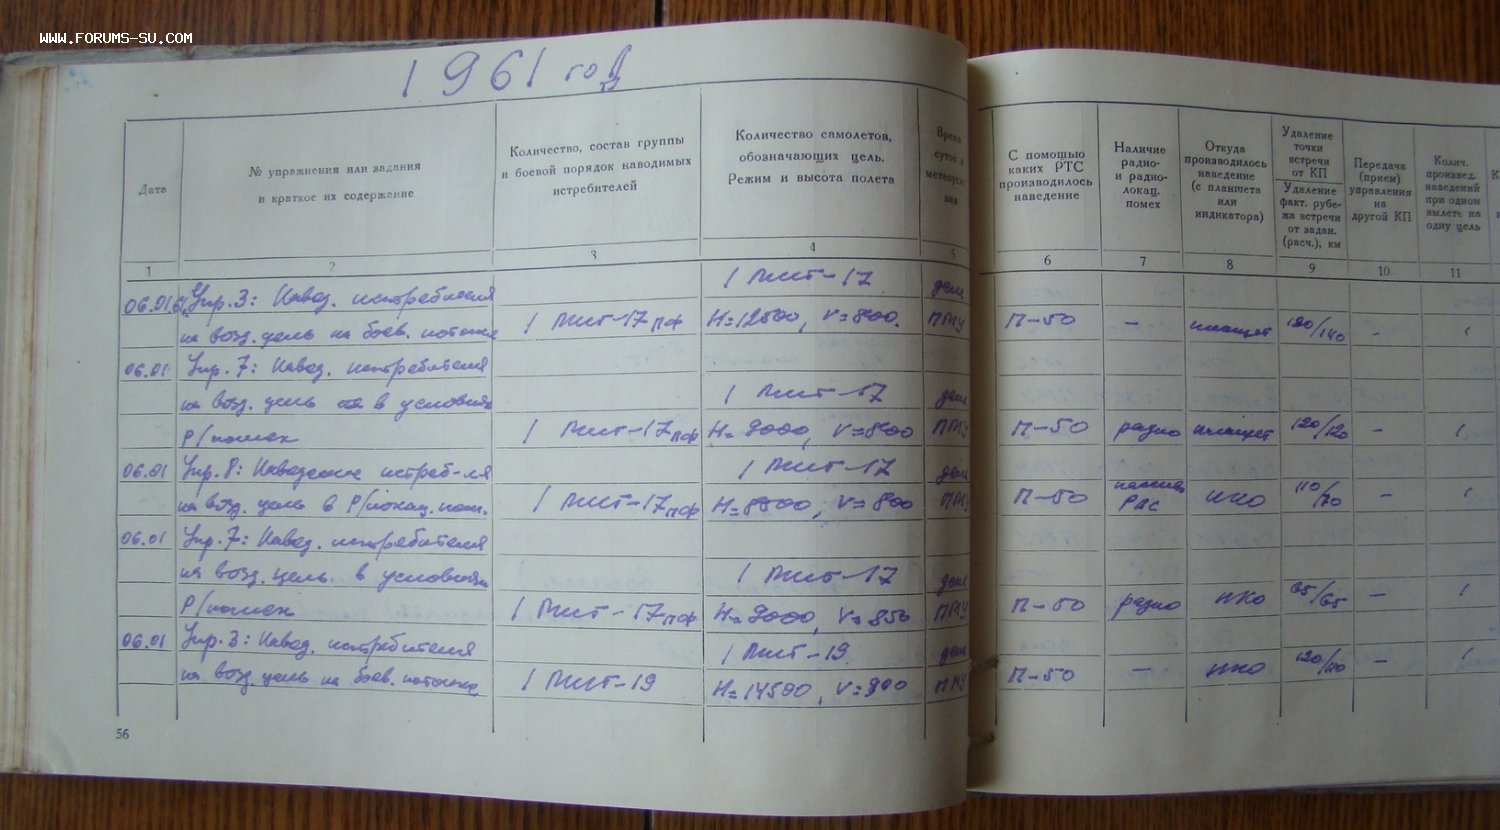 WWW.FORUMS-SU.COM
1961 год
Дата
№ упражнения или задания
и краткое их содержание
Количество, состав группы
и боевой порядок наводимых
истребителей
Количество самолетов,
обозначающих цель.
Режим и высота полета
Время
суток и
С помощью
каких РТС
производилось
наведение
Наличие
радио-
и радио-
локац.
помех
Откуда
производилось
наведение
(с планшета
или
индикатора)
Удаление
точки
встречи
от КП
Удаление
факт. рубе-
жа встречи
от задан.
(расч.), км
Передача
(прием)
управления
на
другой КП
Колич.
произвед.
наведений
при одном
вылете на
одну цель
1 2 3 4 5 6 7 8 9 10 11
06.01.61 Упр. 3: Навод. истребителя 1 МИГ-17 день
на возд. цель на боев. потолке 1 МИГ-17 ПФ Н=12500, V=800. ПМУ П-50 – планшет 120/140 – 1
06.01 Упр. 7: Навод. истребителя
на возд. цель в условиях 1 МИГ-17 день
Р/помех 1 МИГ-17 ПФ Н=9000, V=800 ПМУ П-50 радио планшет 120/120 – 1
06.01 Упр. 8: Наведение истреб-ля 1 МИГ-17 день
на возд. цель в Р/локац. пом. 1 МИГ-17 ПФ Н=8500, V=800 ПМУ П-50 РЛС ИКО 110/70 – 1
06.01 Упр. 7: Навод. истребителя
на возд. цель. в условиях 1 МИГ-17 день
Р/помех 1 МИГ-17 ПФ Н=9000, V=850 ПМУ П-50 радио ИКО 65/65 – 1
06.01 Упр. 3: Навод. истребителя 1 МИГ-19 день
на возд. цель на боев. потолке 1 МИГ-19 Н=14500, V=900 ПМУ П-50 – ИКО 120/110 – 1
56